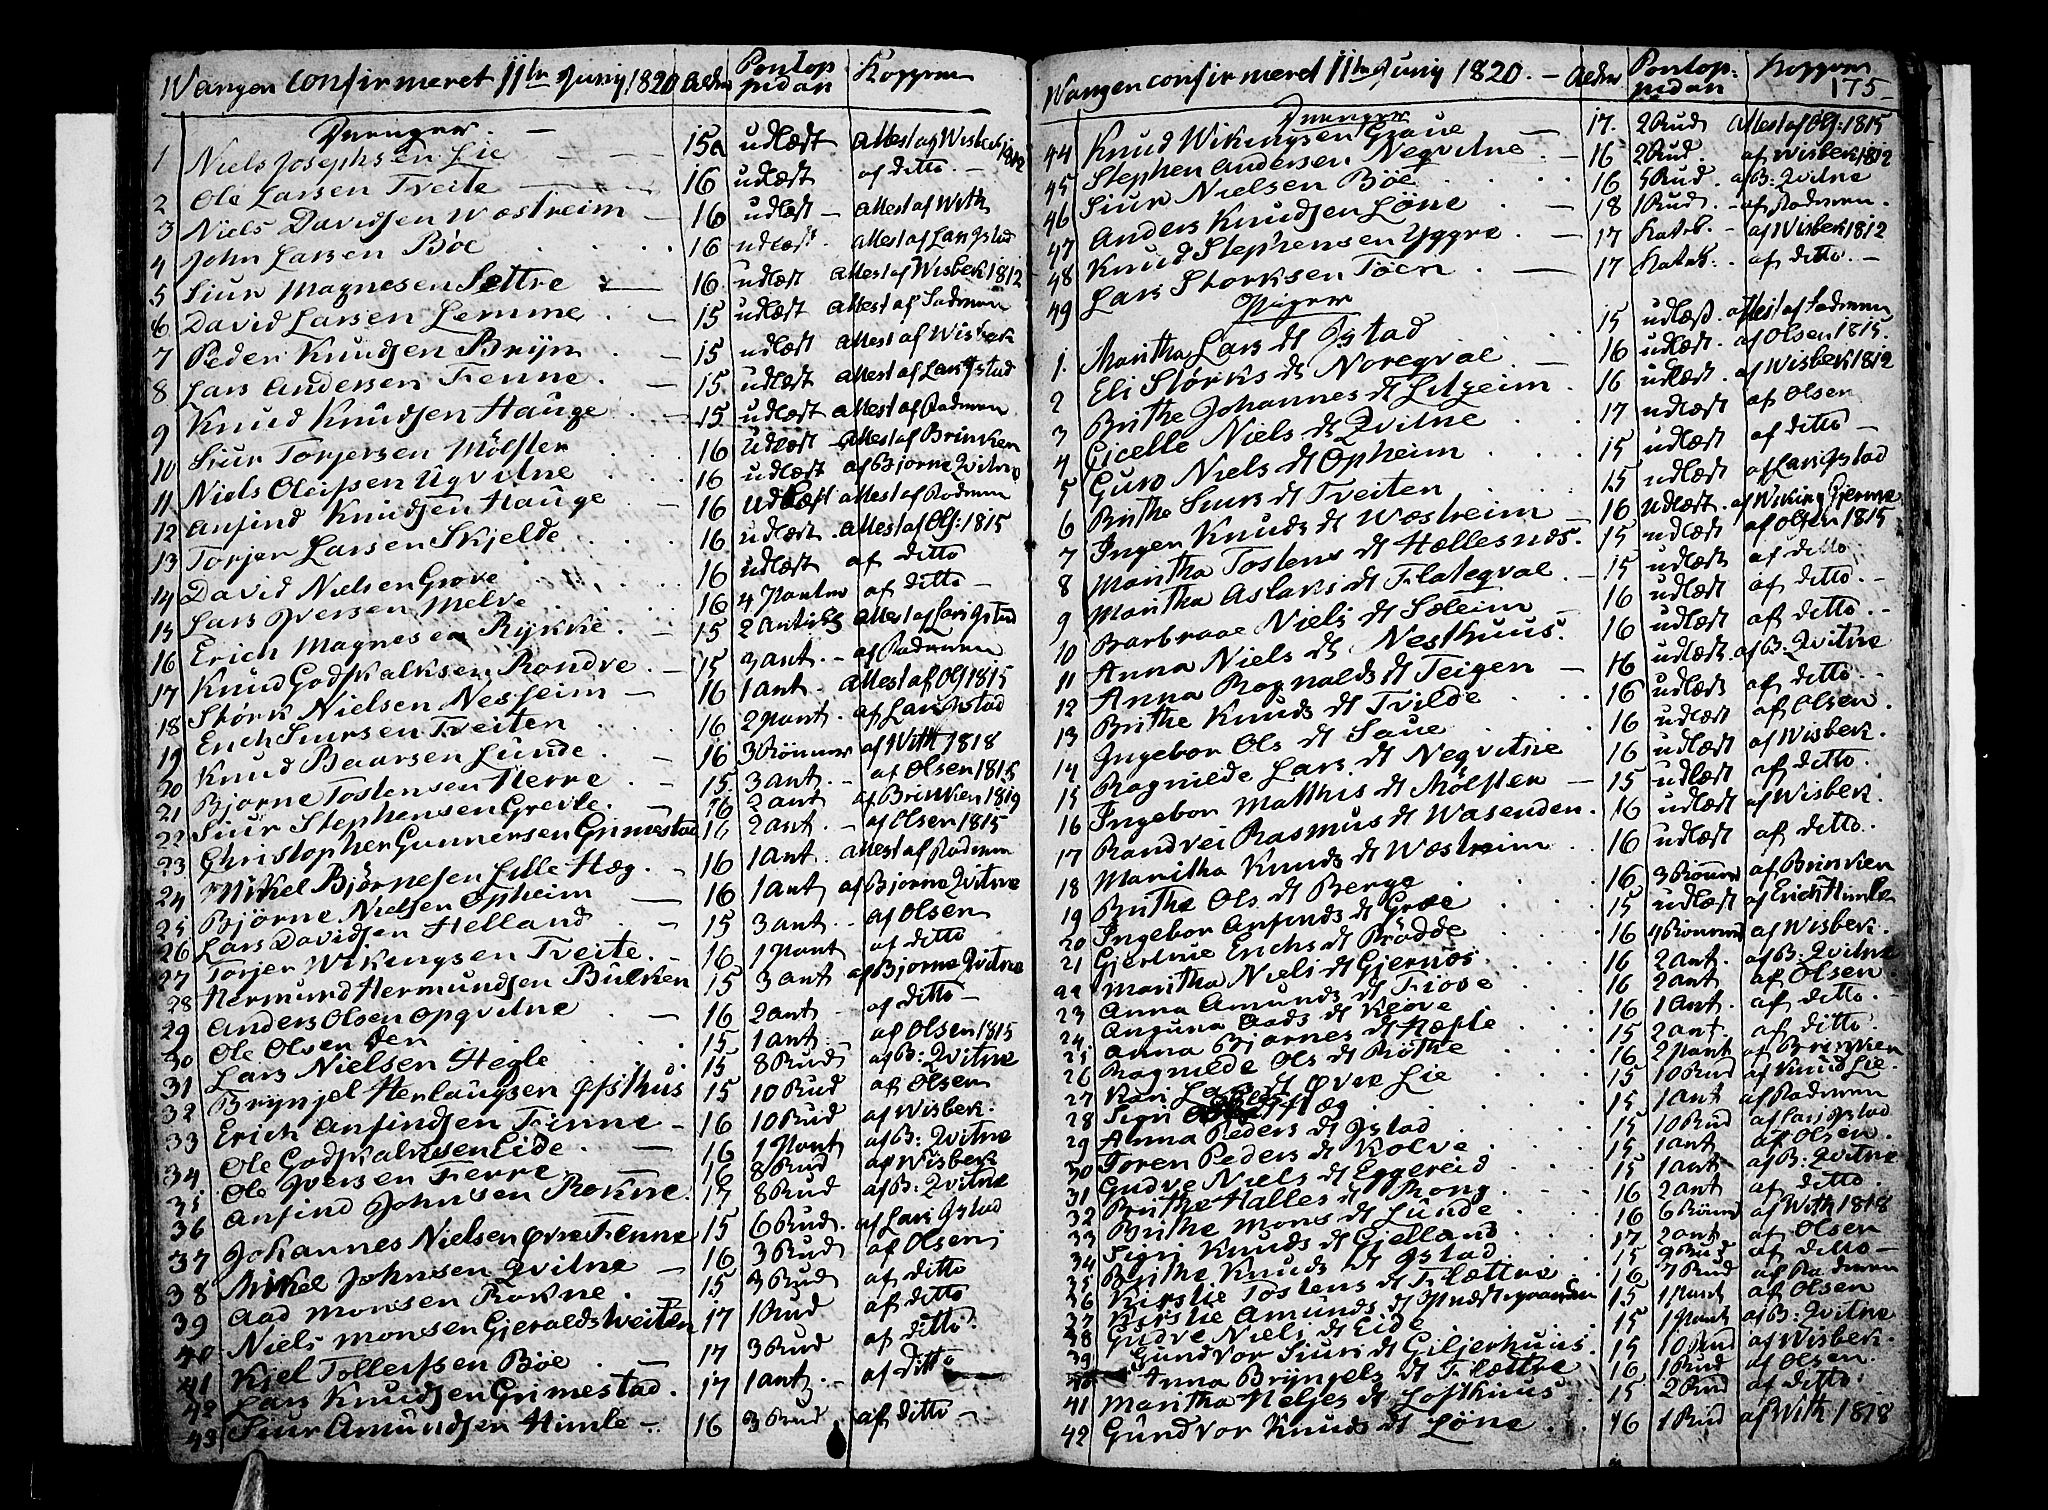 Wangen confirmeret 11te Juny 1820 Alder Pontop pidan Koppern
Drenger. —
1 Niels Josephsen Lie — 15 udlæst Attest af Wisbek 1812
2 Ole Larsen Tveite — 16 udlæst af ditto —
3 Niels Davidsen Wæstreim — 16 udlæst — Attest af With
4 John Larsen Böe 16 udlæst Attest af Lars Gstad
5 Siur Magnesen Settre — 16 udlæst Attest af Wisbek 1812
6 David Larsen Lemme. — 15 udlæst Attest af
7 Peder Knudsen Bryn 15 udlæst Attest af Wisbek
8 Lars Andersen Fenne. — 15 udlæst Attest af Lars Gstad
9 Knud Knudsen Hauge — 15 udlæst Attest af
10 Siur Torjersen Mölster 16 udlæst Attest af Brinken
11 Niels Oleifsen Ugvitne 16 udlæst af Bjorne Qvitne
12 Anfind Knudsen Hauge 16 udlæst Attest af
13 Torjer Larsen Skjelde 16 udlæst Attest af Ols: 1815
14 David Nielsen Grove 16 udlæst af ditto
15 Lars Iversen Melve 16 4 Ponten af ditto —
16 Erich Magnesen Rykke. — 15 2 Attest af Lars Gstad
17 Knud Godskalksen Rondve — 15 3 ant. — af
18 Störk Nielsen Nesheim — 16 1 ant. Attest af Ols 1815
19 Erich Siursen Tveiten 16 2 Pont. af Lars Gstad
20 Knud Baarsen Lunde. — 16 3 Bönner af With 1818
21 Bjorne Tostensen Herre — 15. 3 ant. — af Olsen 1815
22 Siur Stephensen Greve. — 16 2 ant af Brinken 1819
23 Christopher Gunnersen Grimestad 16 2 ant. — af Olsen 1815
24 Mikel Björnesen Lille Hæg. — 16 1 ant. Attest af
25 Björne Nielsen Opheim — 16 1 ant af Bjorne Qvitne
26 Lars Davidsen Helland — 15 3 ant. af Olsen
27 Torjer Wikingsen Tveite. — 16 1 Pont af ditto
28 Hermund Hermundsen Bulken 15 3 ant af Bjorne Qvitne
29 Anders Olsen Opqvitne — 16 2 ant af ditto —
30 Ole Olsen Den 15 1 ant. af Olsen 1815
31 Lars Nielsen Hegle 15 8 Bud af B: Qvitne
32 Brynjel Herlaugsen Ofsthus 15 10 Bud af Olsen
33 Erich Anfindsen Finne — 16 10 Bud af Wisbek.
34 Ole Godskalksen Eide. — 16 1 Pont af B: Qvitne
35 Ole Iversen Fierre. — 16 8 Bud af Wisbek
36 Anfind Johnsen Rokne. 17 8 Bud af B: Qvitne
37 Johannes Nielsen Övre Fenne 15 6 Bud. af Lars Gstad
38 Mikel Johnsen Qvitne — 16 3 Bud af Olsen
39 Aad Monsen Rokne. 15 3 Bud af ditto
40 Niels Monsen Gjeraldstveiten 17 1 Bud af ditto
41 Kiel Tollefsen Böe — 17 3 Bud af ditto
42 Lars Knudsen Grimestad. 17 1 ant. — af ditto
43 Siur Amundsen Himle — 16 3 Bud af ditto —
Wangen confirmeret 11te Juny 1820. — Alder Pontop- pidan Koppern 175
Drenger
44 Knud Wikingsen Graue — 17. 2 Bud Attest af Ols: 1815
45 Stephen Andersen Neqvitne — 16 2 Bud. af Wisbek 1812
46 Siur Nielsen Böe 16 5 Bud. af B: Qvitne
47 Anders Knudsen Löne. — 18 1 Bud. — af
48 Knud Stephensen Yggre. — 17 Katek. — af Wisbek 1812
49 Lars Storksen Töen. — 17 Katek. — af ditto. —
Piger
1. Maritha Lars dt Gstad 15 udlæst. Attest af
2 Eli Störks dt Noreqval. — 16 udlæst. af Olsen 1815.
3 Brithe Johannes dt Litzeim. 16 udlæst. af Wisbek 1812
4 Gicelle Niels dt Qvitne 17 udlæst af Olsen
5 Guro Niels dt Opheim 15 udlæst af ditto —
6 Brithe Siurs dt Tveiten 15 udlæst af Lars Gstad
7 Ingen Knuds dt Wæstreim — 16 udlæst. af Wiking Gjerme
8 Maritha Tostens dt Hællesnæs. 15 udlæst af Olsen 1815
9 Maritha Aslaks dt Flateqval. — 15 udlæst af ditto
10 Barbraae Niels dt Sæleim — 16 udlæst af ditto. —
11 Anna Niels dt Nesthuus. 16 udlæst af ditto. —
12 Anna Rognalds dt Teigen — 16 udlæst. af B: Qvitne
13 Brithe Knuds dt Tvilde 16 udlæst af ditto. —
14 Ingebor Ols dt Saue 16 udlæst af Olsen.
15 Ragnilde Lars dt Neqvitne 16 udlæst af Wisbek.
16 Ingebor Matthis dt Mölster — 15 udlæst af ditto.
17 Randvei Rasmus dt Wasenden. 16 udlæst af Wisbek.
18 Maritha Knuds dt Wæstreim 16 udlæst af ditto.
19 Brithe Ols dt Berge 16 3 Bönner af Brinken
20 Ingebor Anfinds dt Græe 15 udlæst af Erich Himle
21 Gjertrue Erichs dt Rödde 16 4 af Wisbek.
22 Maritha Niels dt Gjernæs 16 2 ant. af B: Qvitne
23 Anna Amunds dt Fiose 16 2 ant af Olsen.
24. Anguna Aads dt Kløve 16 1 ant. af ditto. —
25 Anna Bjørnes dt Hæfte 15 2 ant. af ditto.
26 Ragnilde Ols dt Röthe 16 2 Pont af Brinken
27 Kari Lars dt Over Lie 15 10 Bud af Knud Lie.
28 Signi Hæg 15 1 ant af
29 Anna Peders dt Gstad 15 10 Bud af Lars Gstad
30 Toren Peders dt Kolve 15 1 ant af Olsen.
31 Gudve Niels dt Eggereid 15 1 ant af B: Qvitne
32 Brithe Halles dt Rong. 16 2 ant af ditto.
33 Brithe Mons dt Lunde 16 6 Bönner af With 1818
34 Signi Knuds dt Gjelland 17 2 ant af Olsen
35 Brithe Knuds dt Gstad. 15 9 Bud af ditto —
36 Kirstie Tostens dt Flættre 16 7 Bud af
37 Kirstie Amunds dt 15 1 Pont af Olsen
38 Gudve Niels dt Eide 15 1 Pont af B: Qvitne
39 Gundvor Siurs dt Giljerhuus. 15 10 Bud af Wisbek.
40 Anna Bryngels dt Flættre 16 1 Bud af Olsen.
41 Maritha Helges dt Lofthuus 15 2 Bud af ditto.
42 Gundvor Knuds dt Löne 16 1 Bud af With 1818